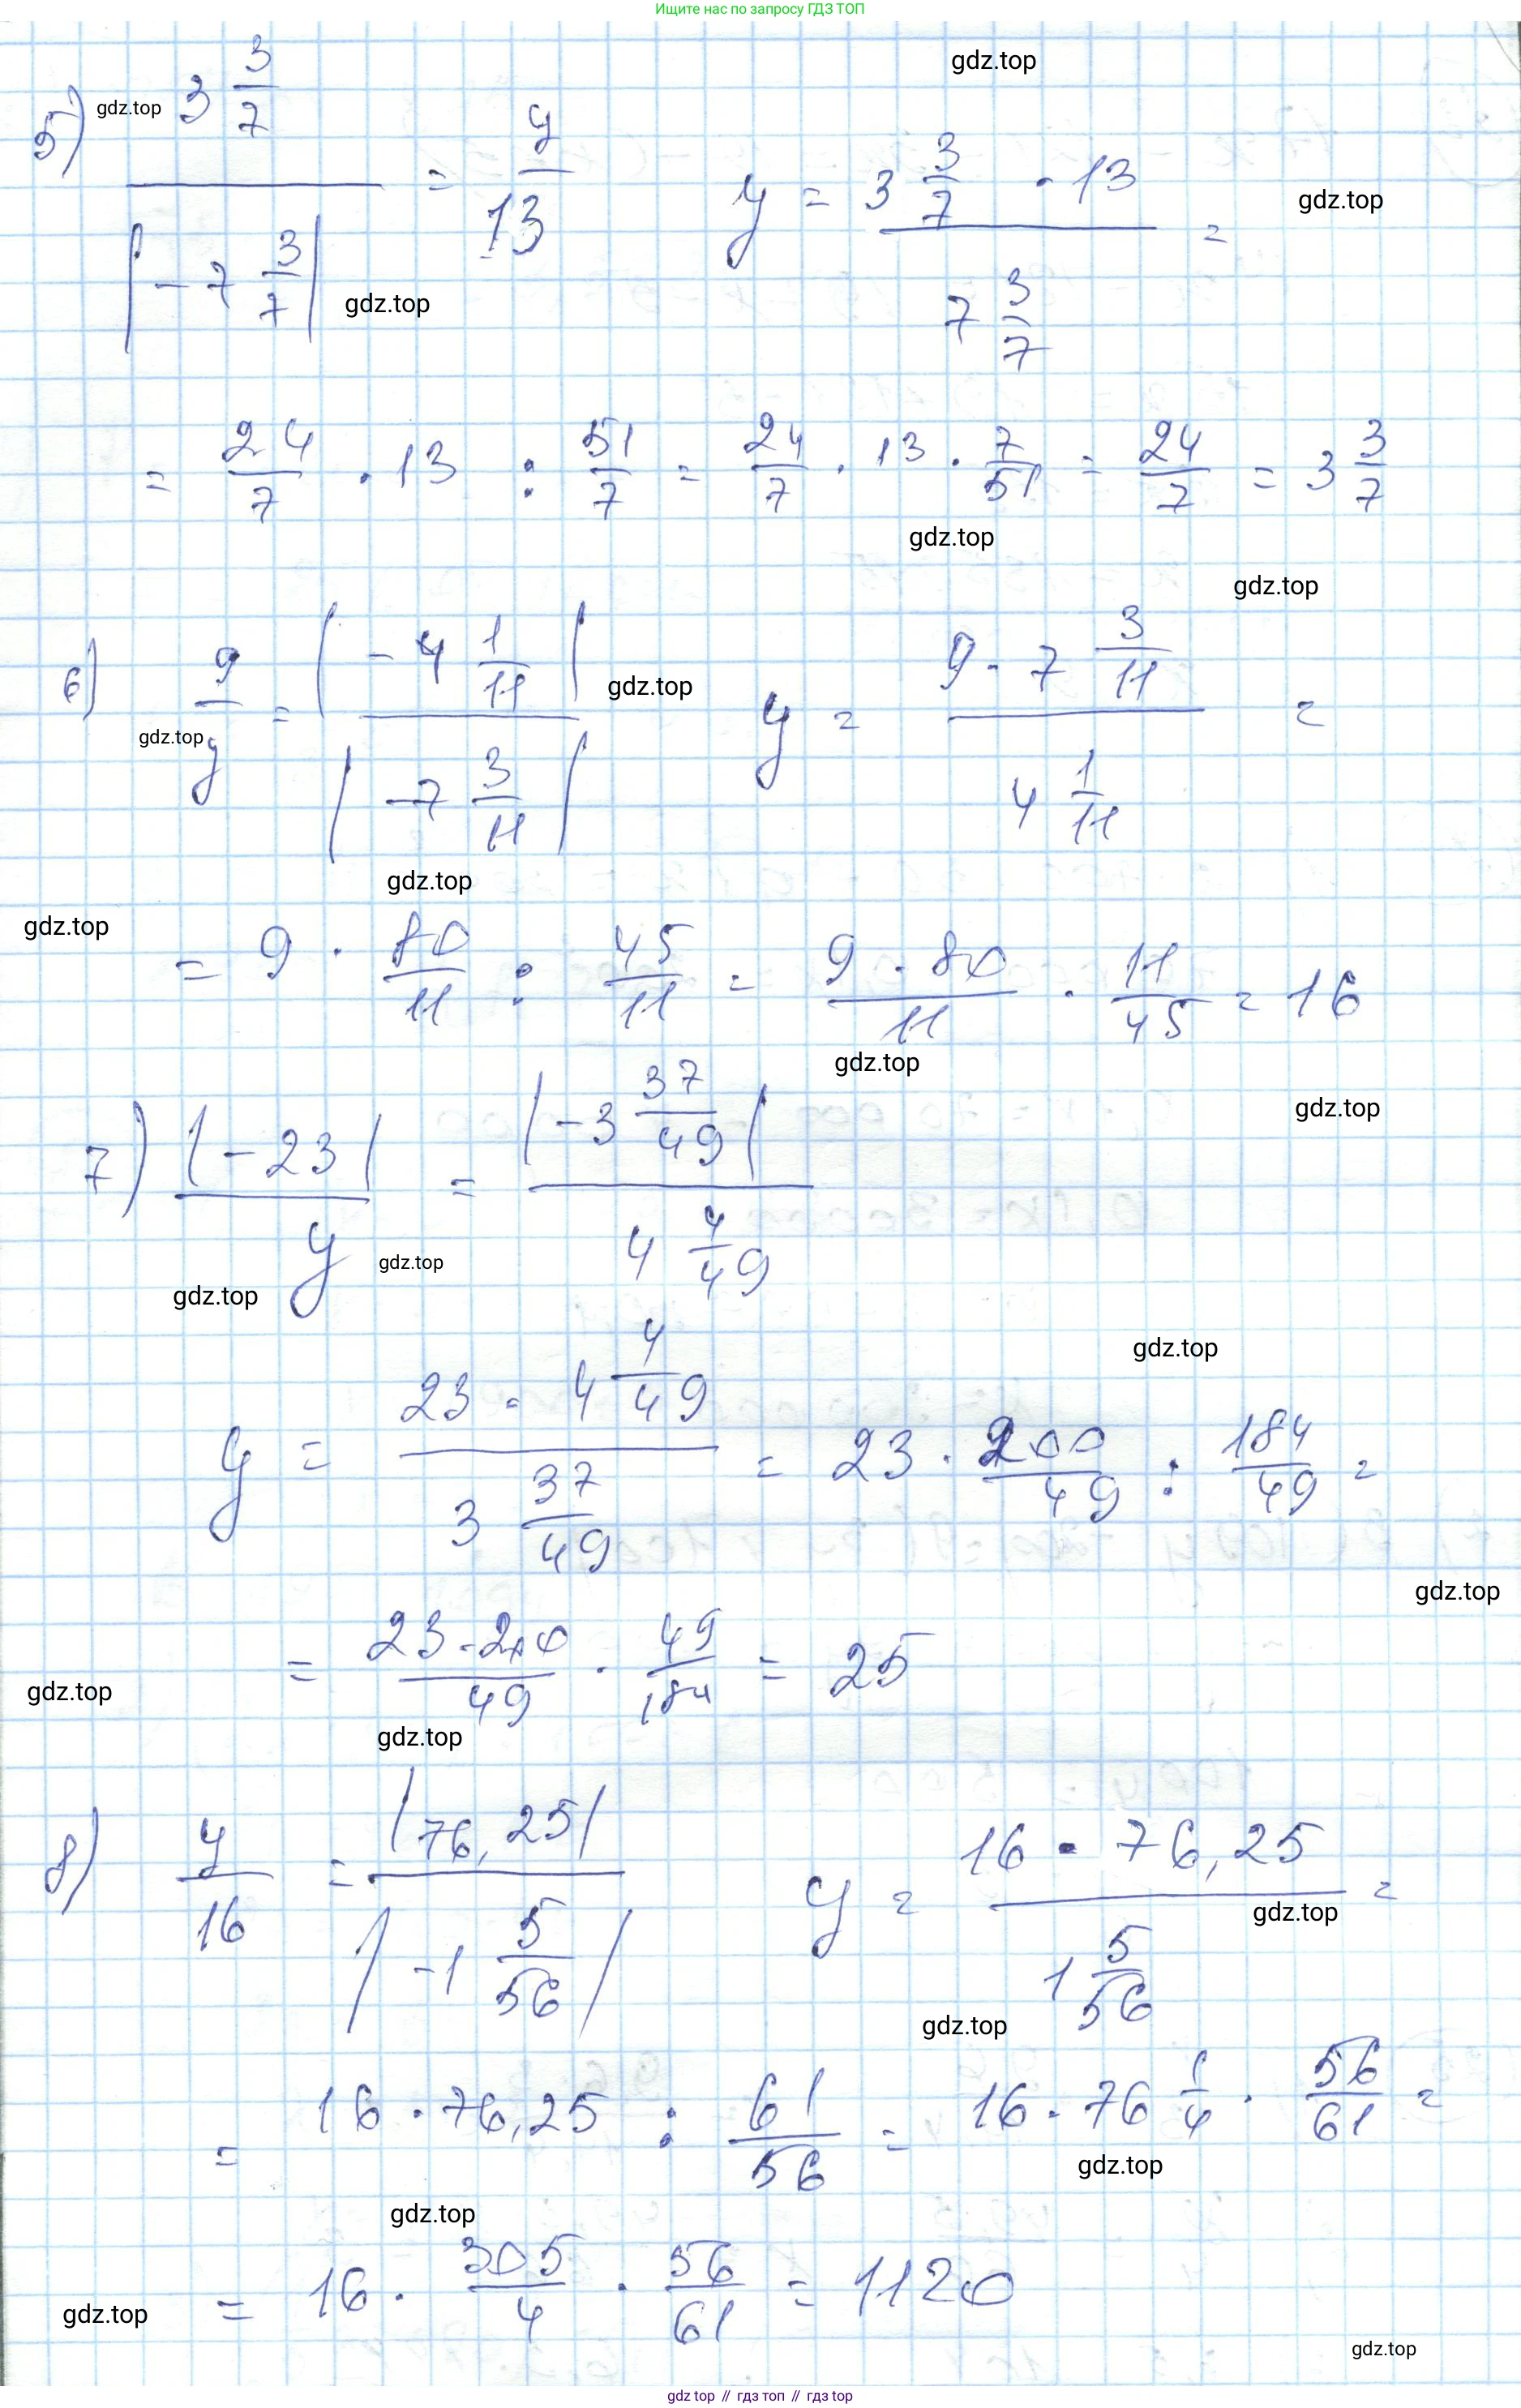 Ищите нас по запросу ГДЗ ТОП
gdz.top
5) gdz.top 3 3/7 / |-7 3/7| = y/13 y = 3 3/7 · 13 / 7 3/7 =
gdz.top
gdz.top
= 24/7 · 13 : 51/7 = 24/7 · 13 · 7/51 = 24/7 = 3 3/7
gdz.top
gdz.top
6) 9/y = |-4 1/11| / |-7 3/11| y = 9 · 7 3/11 / 4 1/11 =
gdz.top
gdz.top
gdz.top
gdz.top
= 9 · 80/11 : 45/11 = 9 · 80/11 · 11/45 = 16
gdz.top
gdz.top
7) |-23|/y = |-3 37/49| / 4 4/49
gdz.top
gdz.top
gdz.top
y = 23 · 4 4/49 / 3 37/49 = 23 · 200/49 : 184/49 =
gdz.top
= 23 · 200/49 · 49/184 = 25
gdz.top
gdz.top
8) y/16 = |76,25| / |-1 5/56| y = 16 · 76,25 / 1 5/56 =
gdz.top
gdz.top
= 16 · 76,25 : 61/56 = 16 · 76 1/4 · 56/61 =
gdz.top
gdz.top
= 16 · 305/4 · 56/61 = 1120
gdz.top
gdz.top
gdz top // гдз топ // гдз top